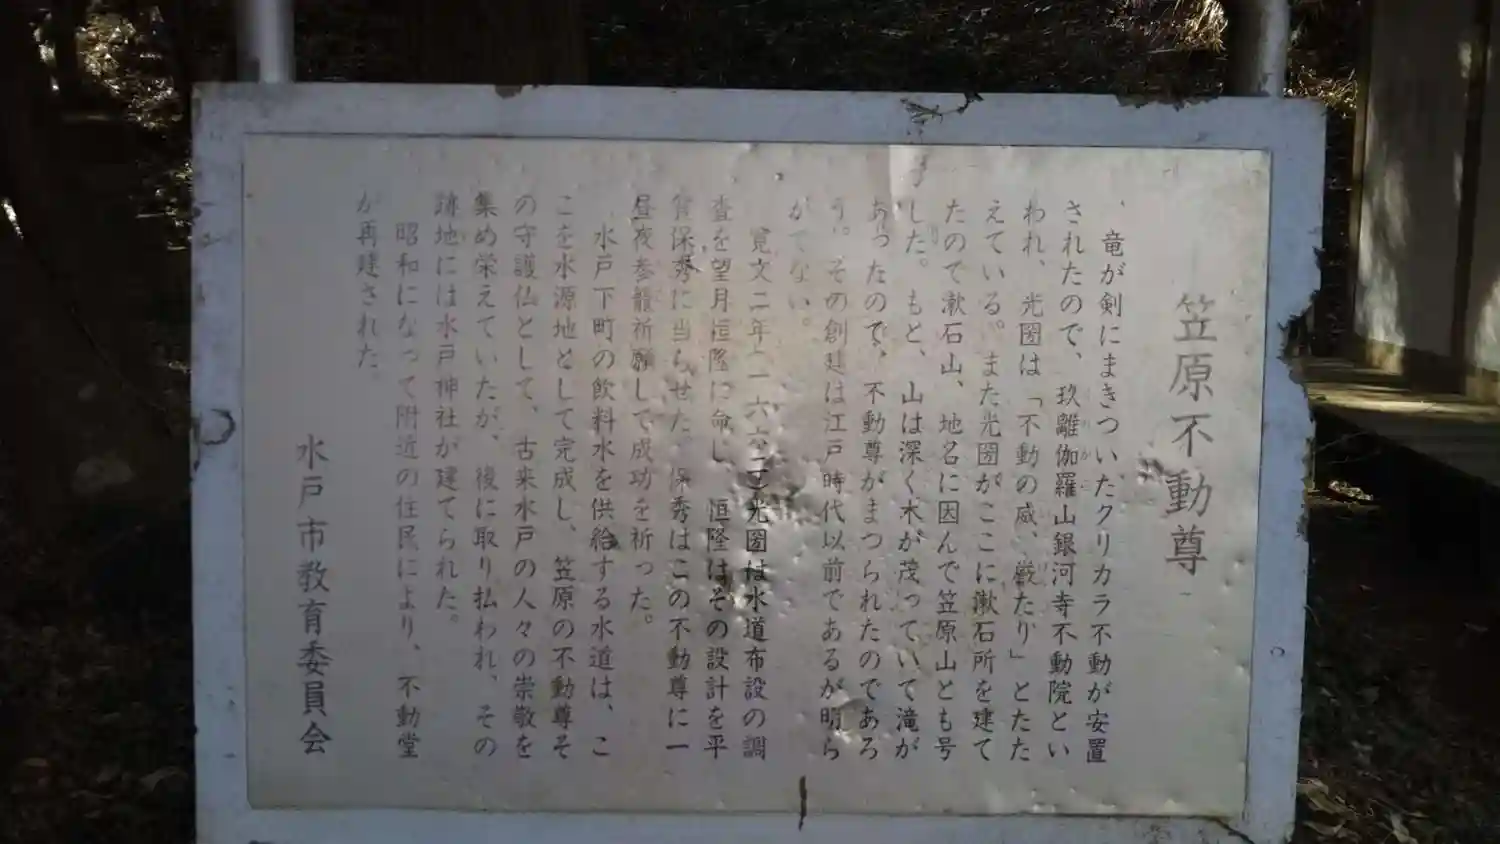 笠原不動尊
、竜が剣にまきついたクリカラ不動が安置
されたので、玖離伽羅山銀河寺不動院とい
われ、光圀は「不動の威、厳たり」とたた
えている。また光圀がここに漱石所を建て
たので漱石山、地名に因んで笠原山とも号
した。もと、山は深く木が茂っていて滝が
あったので、不動尊がまつられたのであろ
う。その創建は江戸時代以前であるが明ら
かでない。
寛文二年(一六六二)光圀は水道布設の調
査を望月恒隆に命し、恒隆はその設計を平
賀保秀に当らせた。保秀はこの不動尊に一
昼夜参籠祈願して成功を祈った。
水戸下町の飲料水を供給する水道は、こ
こを水源地として完成し、笠原の不動尊そ
の守護仏として、古来水戸の人々の崇敬を
集め栄えていたが、後に取り払われ、その
跡地には水戸神社が建てられた。
昭和になって附近の住民により、不動堂
が再建された。
水戸市教育委員会